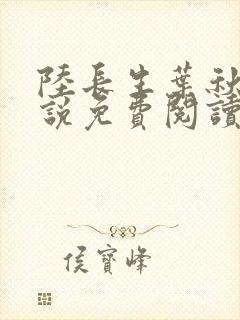 陸長生葉秋
說免費閱讀
侯寶峰